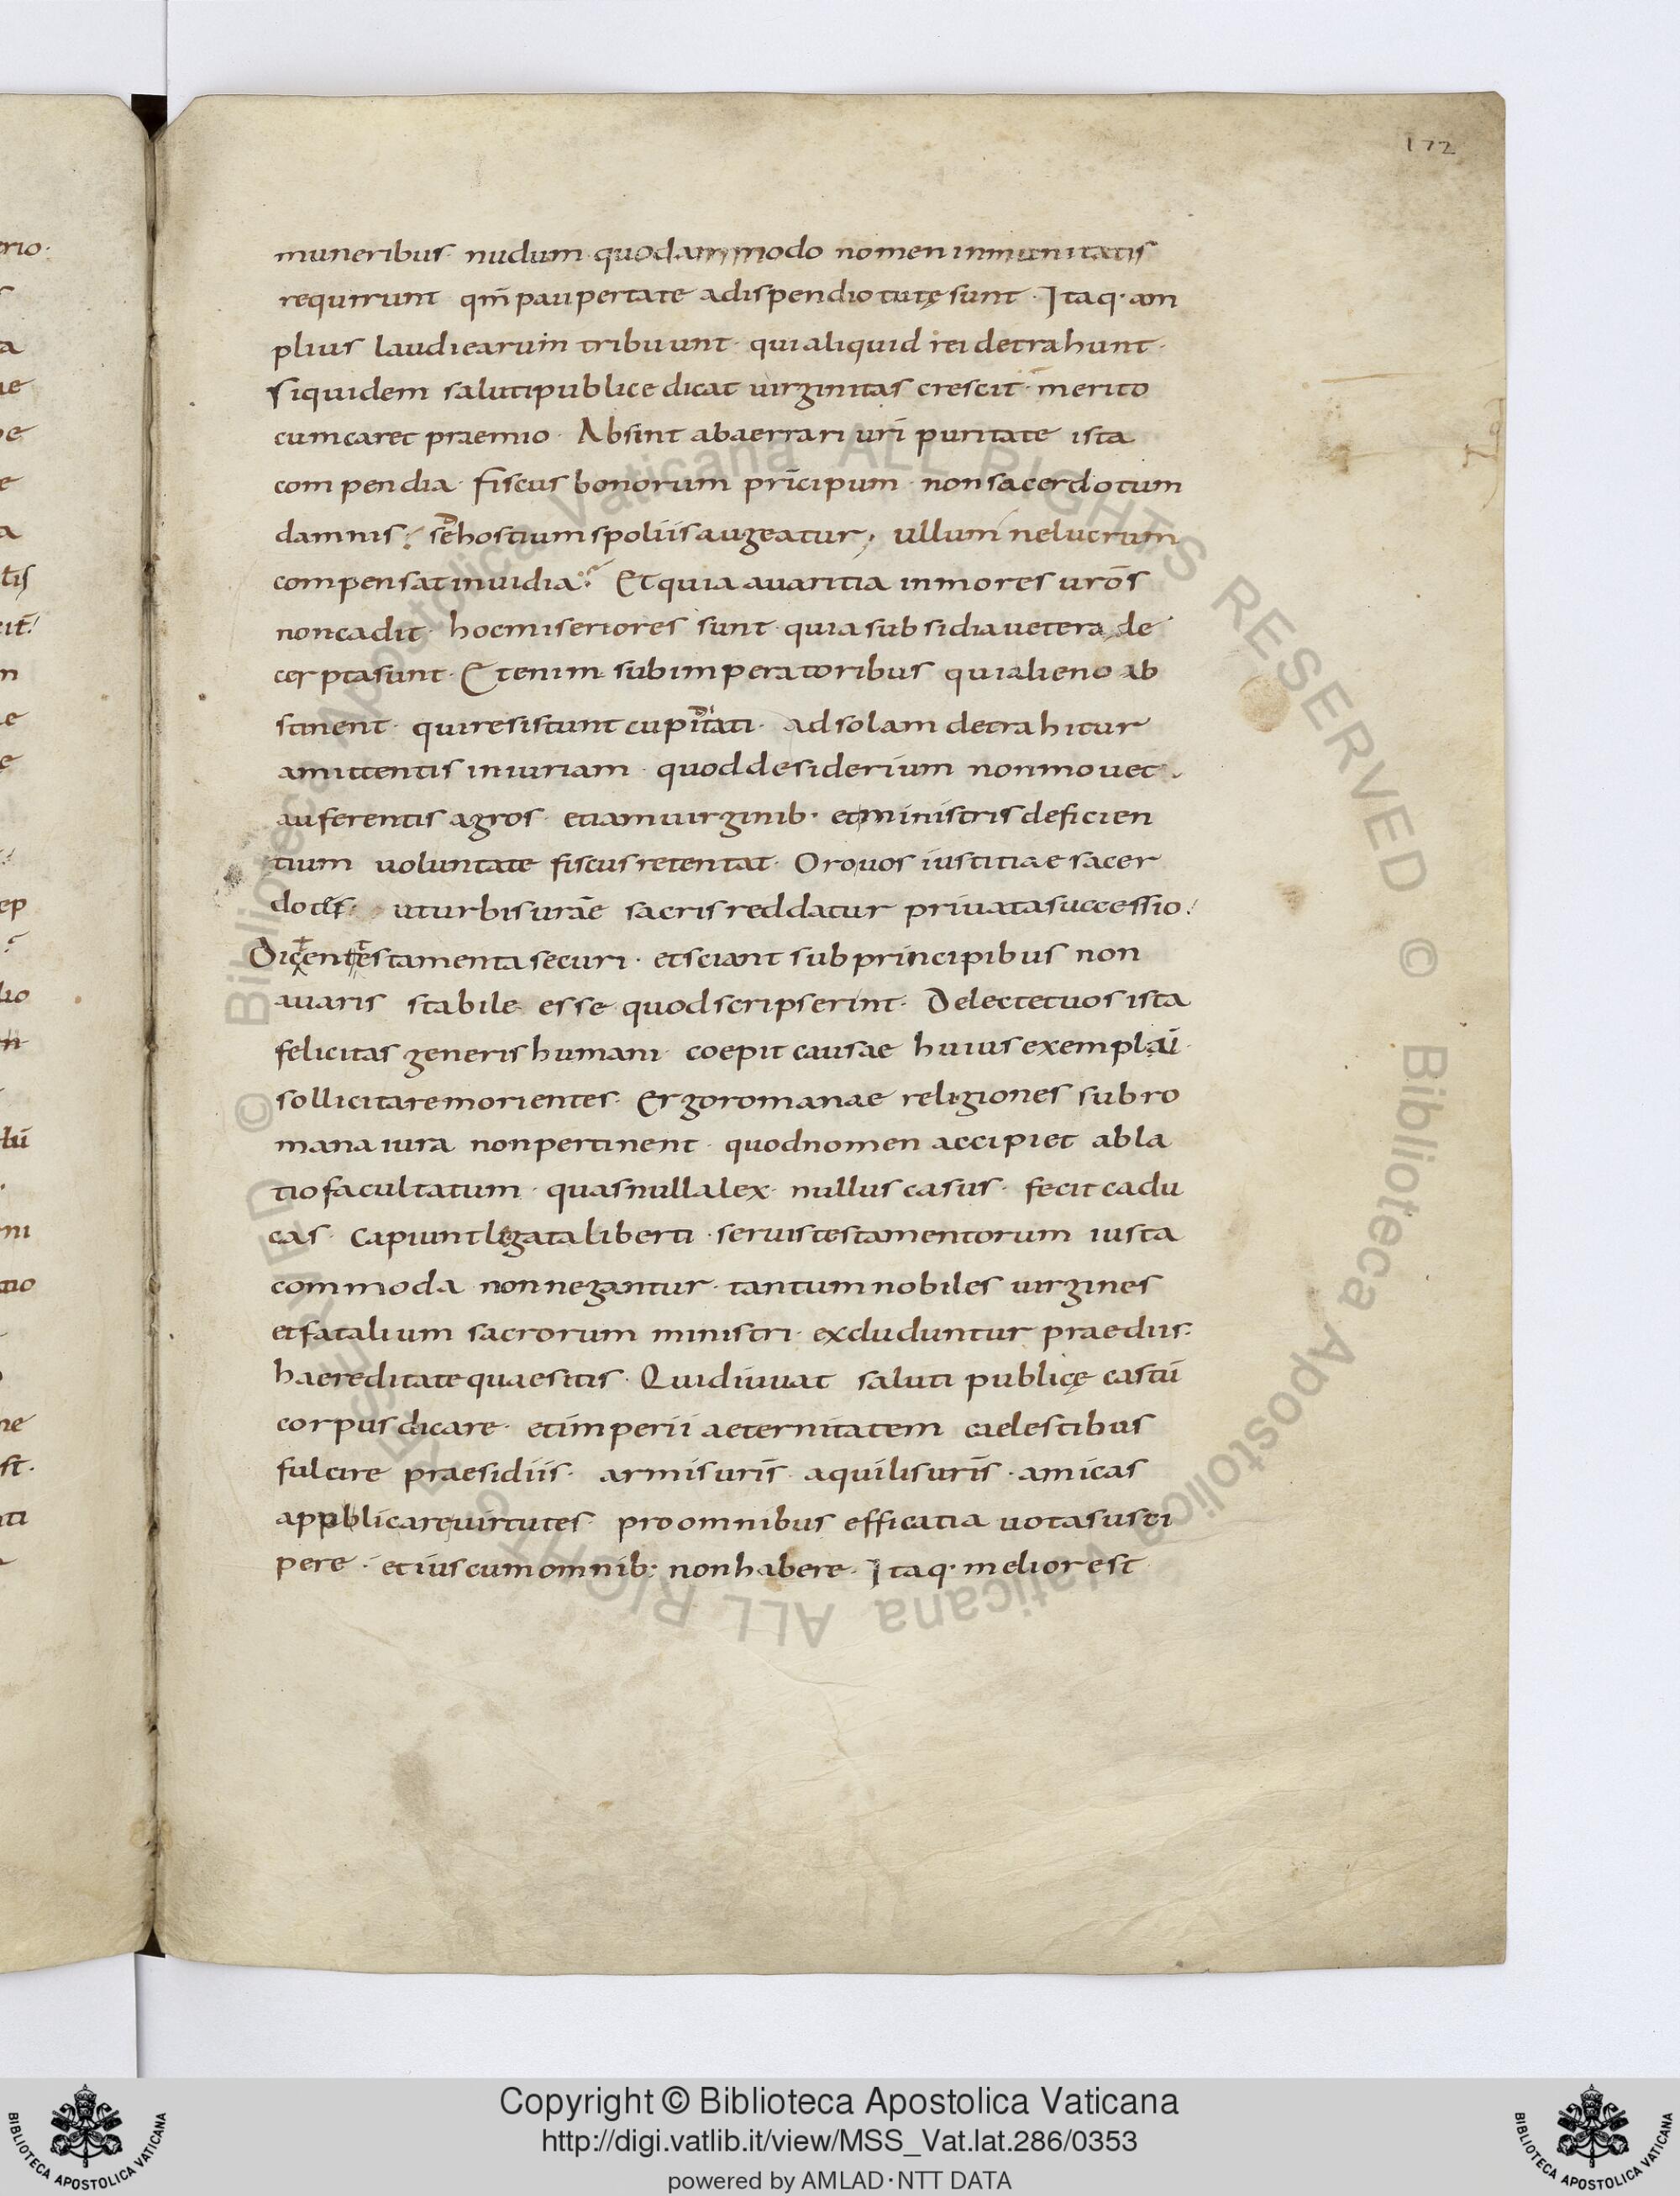 172
muneribus· nudum quodammodo nomen inmunitatis
requirunt qm̄ paupertate a dispendio tutę sunt· Itaq· am
plius laudi earum tribuunt· qui aliquid rei detrahunt·
Siquidem saluti publice dicat uirginitas crescit· merito
cum caret praemio· Absint ab aerrari uri puritate ista
compendia· fiscus bonorum prīcipum· non sacerdotum
damnis? sed hostium spoliis augeatur; ullum ne lucrum
compensat inuidia? Et quia auaritia in mores urōs
non cadit· hoc miseriores sunt· quia subsidia uetera de
cerpta sunt· Etenim sub imperatoribus qui alieno ab
stinent· qui resistunt cupiditati· ad solam detrahitur
amittentis iniuriam· quod desiderium non mouet·
auferentis agros· etiam uirginib· et ministris deficien
tium uoluntate fiscus retentat· Oro uos iustitiae sacer
dotes· ut urbis urāe sacris reddatur priuata successio!
Dictent testamenta securi· et sciant sub principibus non
auaris stabile esse quod scripserint· Delectet uos ista
felicitas generis humani· coepit causae huius exemplāi
sollicitare morientes· Ergo romanae religiones sub ro
mana iura non pertinent· quod nomen accipiet abla
tio facultatum· quas nulla lex· nullus casus· fecit cadu
cas· Capiunt legata liberti· seruis testamentorum iusta
commoda non negantur· tantum nobiles uirgines
et fatalium sacrorum ministri· excluduntur praediis·
haereditate quaesitis· Quid iuuat saluti publicę castū
corpus dicare· et imperii aeternitatem caelestibus
fulcire praesidiis· armis urīs· aquilis urīs· amicas
appublicare uirtutes· pro omnibus efficatia uota susci
pere· et ius cum omnib: non habere· Itaq· melior est
erio·
tis
ep
lio
rni
tio
ne
st·
Copyright © Biblioteca Apostolica Vaticana
http://digi.vatlib.it/view/MSS_Vat.lat.286/0353
powered by AMLAD·NTT DATA
BIBLIOTECA APOSTOLICA VATICANA
BIBLIOTECA APOSTOLICA VATICANA
© Biblioteca Apostolica Vaticana ALL RIGHTS RESERVED © Biblioteca Apostolica Vaticana ALL RIGHTS RESERVED